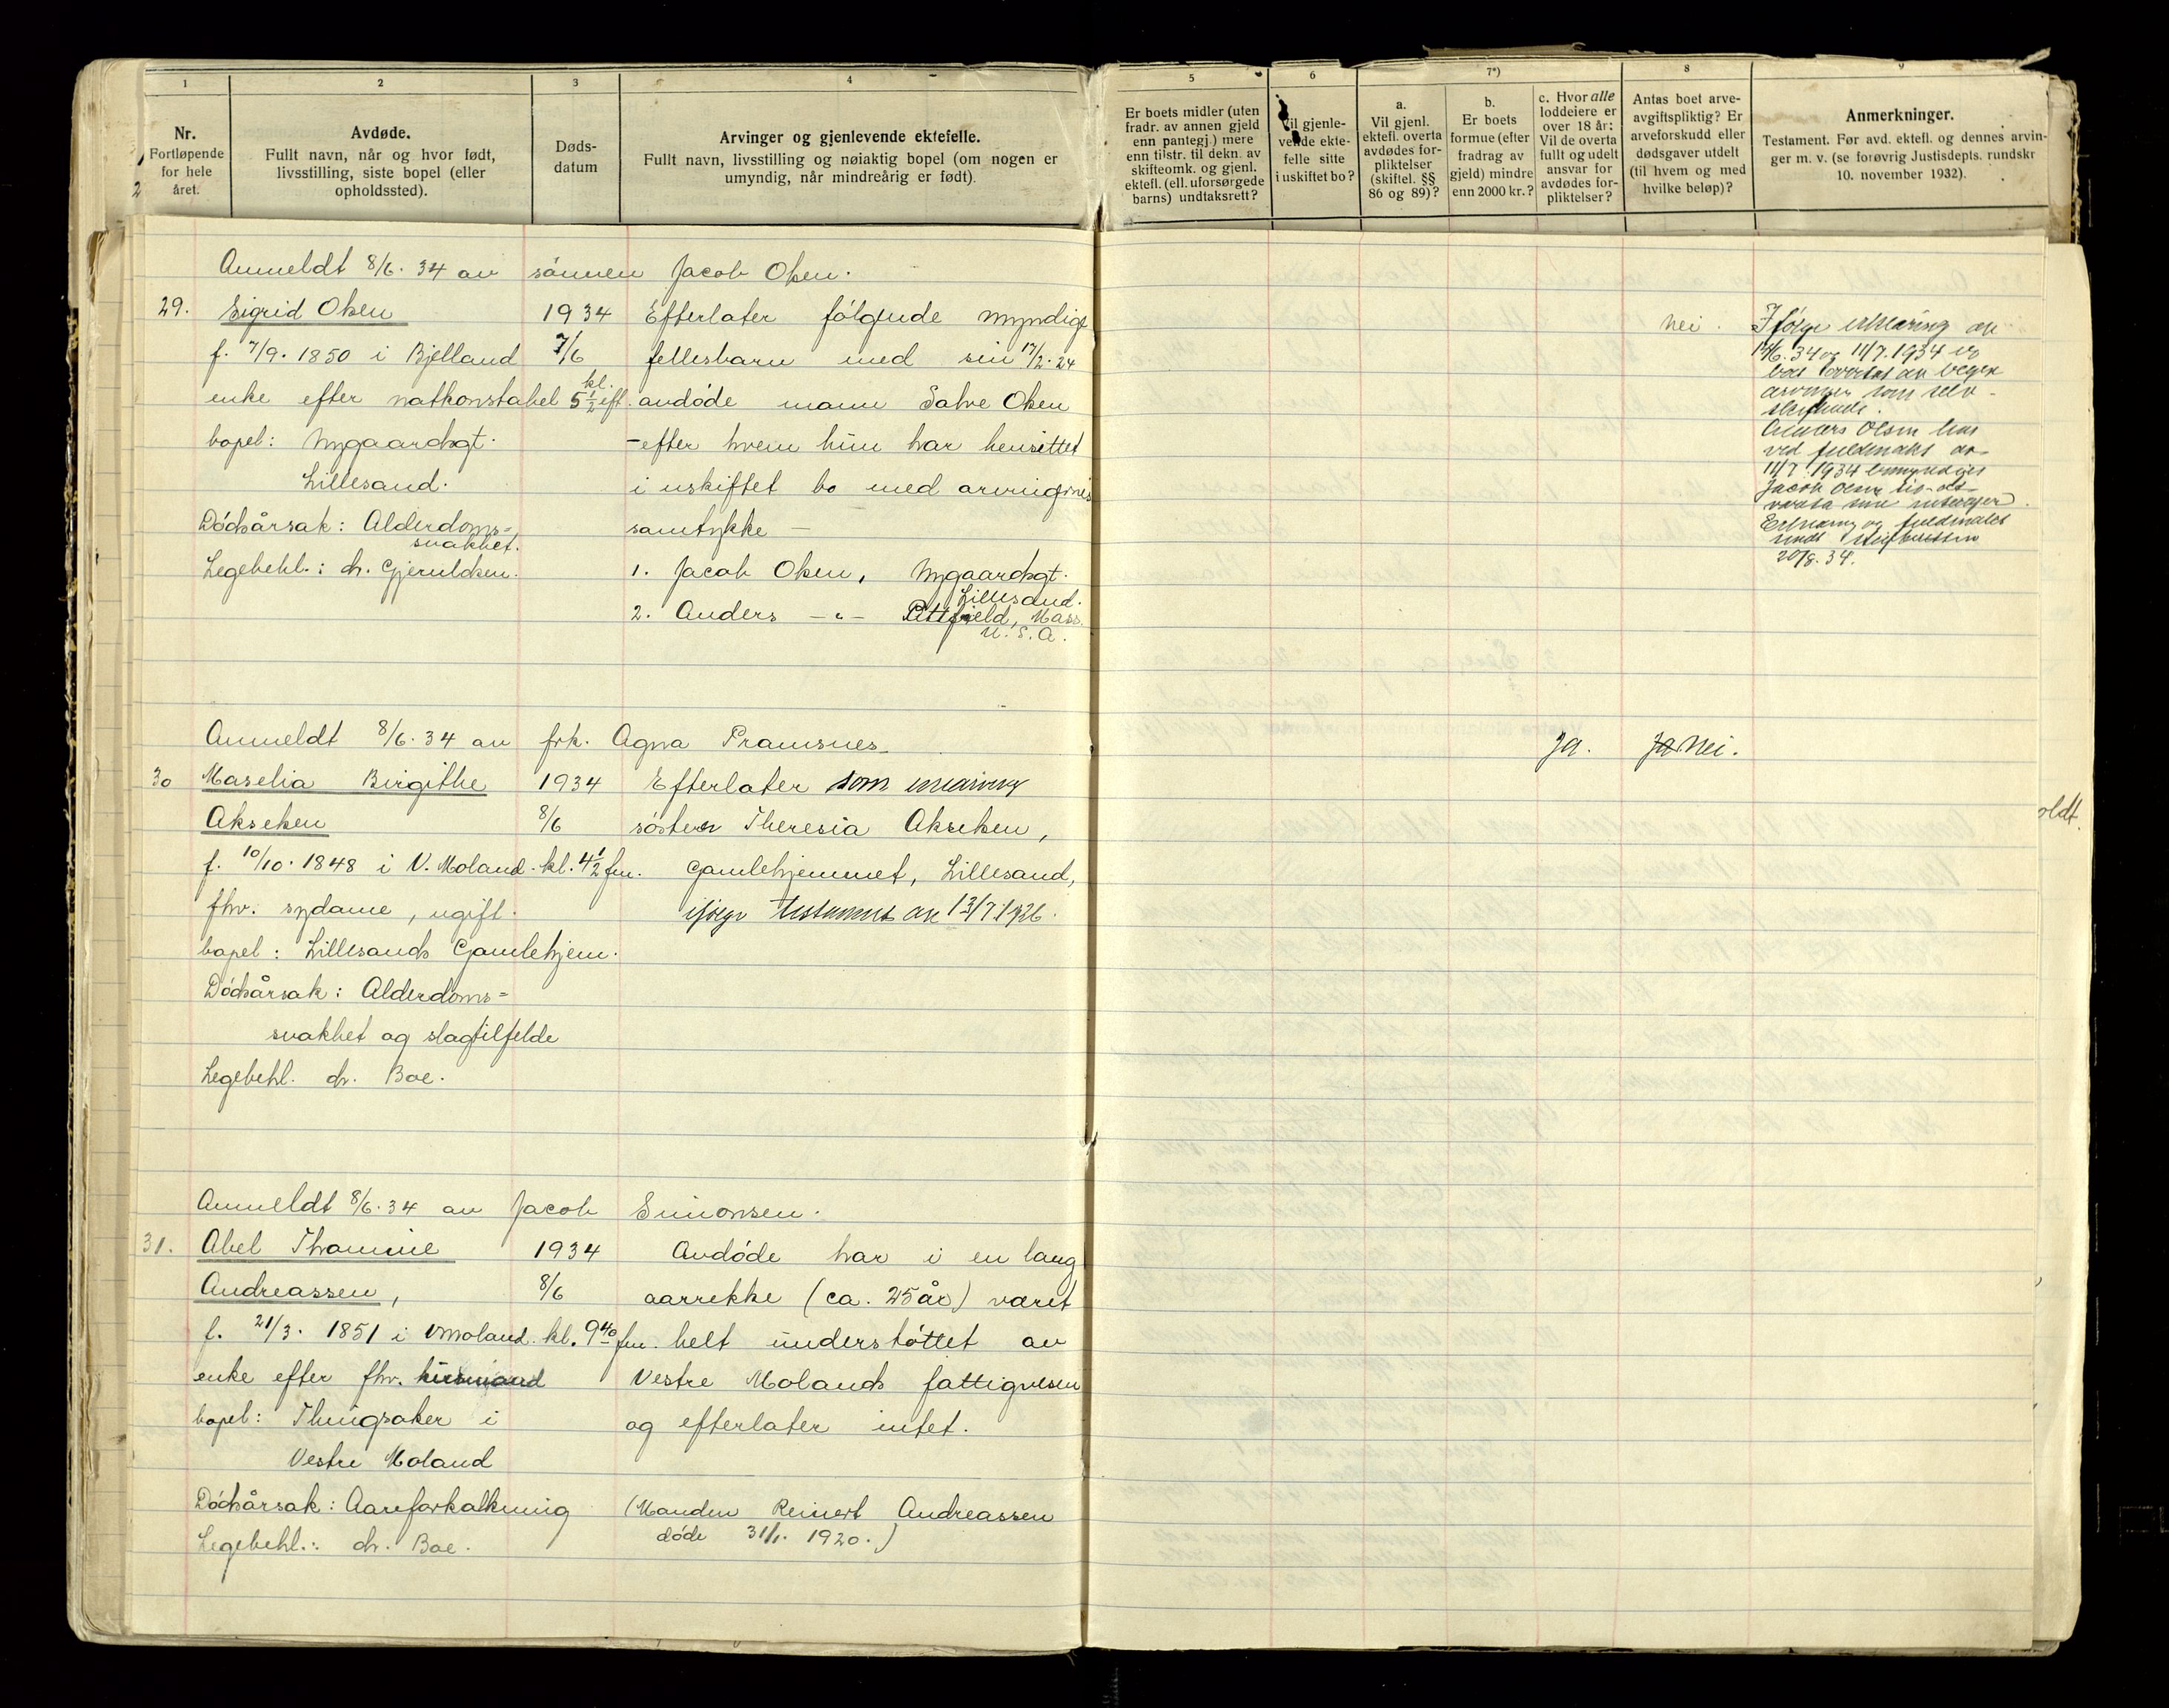 1
Nr.
Fortløpende
for hele
året.
2
Avdøde.
Fullt navn, når og hvor født,
livsstilling, siste bopel (eller
opholdssted).
3
Dødsdatum
4
Arvinger og gjenlevende ektefelle.
Fullt navn, livsstilling og nøiaktig bopel (om nogen er
umyndig, når mindreårig er født).
5
Er boets midler (uten
fradr. av annen gjeld
enn pantegj.) mere
enn tilstr. til dekn. av
skifteomk. og gjenl.
ektefl. (ell. uforsørgede
barns) undtaksrett?
6
Vil gjenle-
vende ekte-
felle sitte
i uskiftet bo?
7*)
a.
Vil gjenl.
ektefl. overta
avdødes for-
pliktelser
(skiftel. §§
86 og 89)?
b.
Er boets
formue (efter
fradrag av
gjeld) mindre
enn 2000 kr.?
c. Hvor alle
loddeiere er
over 18 år:
Vil de overta
fullt og udelt
ansvar for
avdødes for-
pliktelser?
8
Antas boet arve-
avgiftspliktig? Er
arveforskudd eller
dødsgaver utdelt
(til hvem og med
hvilke beløp)?
9
Anmerkninger.
Testament. Før avd. ektefl. og dennes arvin-
ger m. v. (se forøvrig Justisdepts. rundskr
10. november 1932).
Anmeldt 8/6. 34 av sönnen Jacob Olsen.
29. Sigrid Olsen 1934 Efterlater fölgende myndige
f. 7/9. 1850 i Bjelland 7/6 fellesbarn med sin 17/2. 24
enke efter natkonstabel kl. 5 1/2 eft. avdöde mann Salve Olsen
bopel: Nygaardsgt. - efter hvem hun har hensittet
Lillesand. i uskiftet bo med arvingenes
Dödsårsak: Alderdoms= samtykke —
svakhet.
Legebehl.: dr. Gjeruldsen. 1. Jacob Olsen, Nygaardsgt.
Lillesand.
2. Anders —"— Pittsfield, Mass.
U. S. A.
nei.
Ifölge erklæring av
14/6. 34 og 11/7. 1934 er
boet overtat av begge
arvinger som selv-
skiftende.
Anders Olsen har
ved fuldmakt av
11/7 1934 bemyndiget
Jacob Olsen til at
vareta sine interesser.
Erklæring og fuldmakt
sendt skifteretten
20/8. 34.
Anmeldt 8/6. 34 av frk. Agna Pramsnes
30 Maselia Birgithe 1934 Efterlater som enearving
Akselsen 8/6 söster Theresia Akselsen,
f. 10/10. 1848 i V. Moland. kl. 4 1/2 fm. Gamlehjemmet, Lillesand,
fhv. sydame, ugift. ifölge testament av 13/7. 1926.
bopel: Lillesands Gamlehjem.
Dödsårsak: Alderdoms=
svakhet og slagtilfelde
Legebehl. dr. Boe.
Ja. Ja Nei.
oldt.
Anmeldt 8/6. 34 av Jacob Simonsen.
31. Abel Thomine 1934 Avdöde har i en lang
Andreassen, 8/6 aarrekke (ca. 25 år) været
f. 21/3. 1851 i V Moland. kl. 9 40 fm. helt understöttet av
enke efter fhv. husmand Vestre Molands fattigvesen
bopel: Thingsaker i og efterlater intet.
Vestre Moland
Dödsårsak: Aareforkalkning (Manden Reinert Andreassen
Legebehl.: dr. Boe. döde 31/1. 1920.)